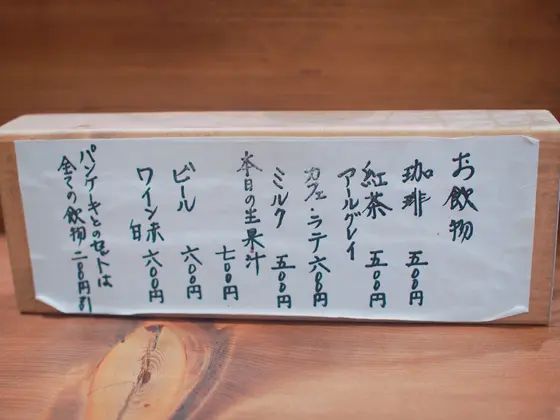 お飲物
珈琲 五〇〇円
紅茶 五〇〇円
アルグレイ
カフェ・ラテ 六〇〇円
ミルク 五〇〇円
本日の生果汁
七〇〇円
ビール 六〇〇円
ワイン赤 六〇〇円
白
パンケーキとのセットは
全ての飲物 二〇〇円引